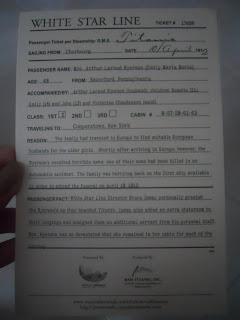 WHITE STAR LINE TICKET #
Passenger Ticket per Steamship: R.M.S. Titanic
SAILING FROM: Cherbourg DATE: 10/April/1912
PASSENGER NAME: Mrs. Arthur Larned Ryerson (Emily Maria Borie)
AGE 48 FROM: Haverford, Pennsylvania
ACCOMPANIED BY: Arthur Larned Ryerson (husband), children Susette (21),
Emily (18) and John (13) and Victorine Chaudanson (maid)
CLASS: 1ST 2ND 3RD CABIN # B-57-59-61-63
TRAVELING TO: Cooperstown, New York
REASON: The family had traveled to Europe to find suitable European
husbands for the older girls. Shortly after arriving in Europe however, the
Ryersons received horrible news one of their sons had been killed in an
automobile accident. The family was hurrying back on the first ship available
in order to attend the funeral on April 19, 1912.
PASSENGER FACT: White Star Line Director Bruce Ismay personally greeted
the Ryersons as they boarded Titanic. Ismay also added an extra stateroom to
their lodgings and assigned them an additional servant from his personal staff.
Mrs. Ryerson was so devastated that she remained in her cabin for much of the
RMS TITANIC, INC.